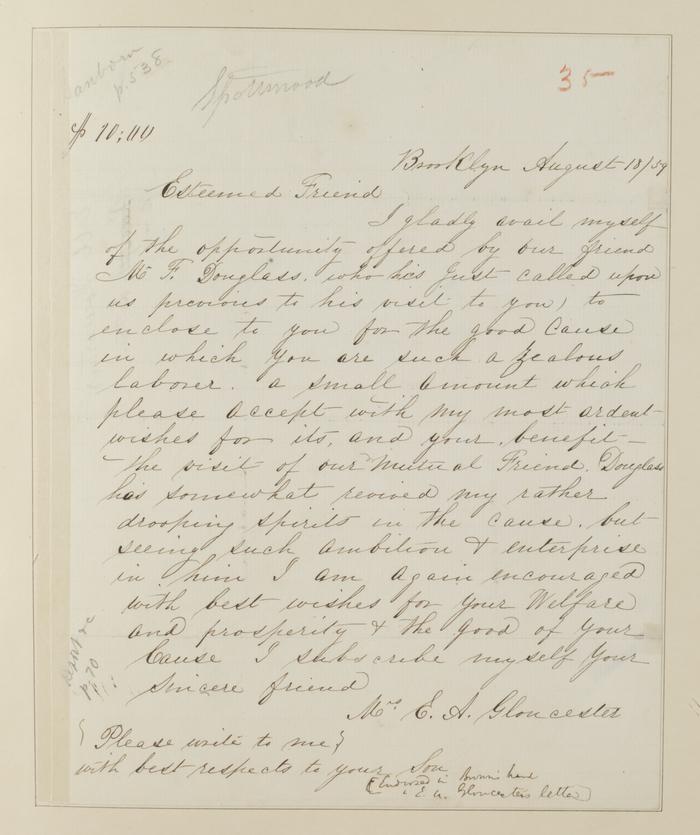 Sanborn
p. 538
Spottswood
35
$10;00
Brooklyn August 18/59
Esteemed Friend
I gladly avail myself
of the opportunity offered by our friend
Mr F. Douglass. who has just called upon
us previous to his visit to you, to
enclose to you for the good Cause
in which you are such a zealous
laborer. a small amount which
please accept with my most ardent
wishes for its, and your, benefit —
The visit of our Mutual Friend. Douglass
has somewhat revived my rather
drooping spirits in the cause. but
seeing such ambition & enterprise
in him I am again encouraged
with best wishes for your Welfare
and prosperity & the good of your
Cause I subscribe myself your
sincere friend
Mrs E. A. Gloucester
{Please write to me}
with best respects to your Son
(Endorsed in Brown's hand
"E. A. Gloucester's letter)
p. 70